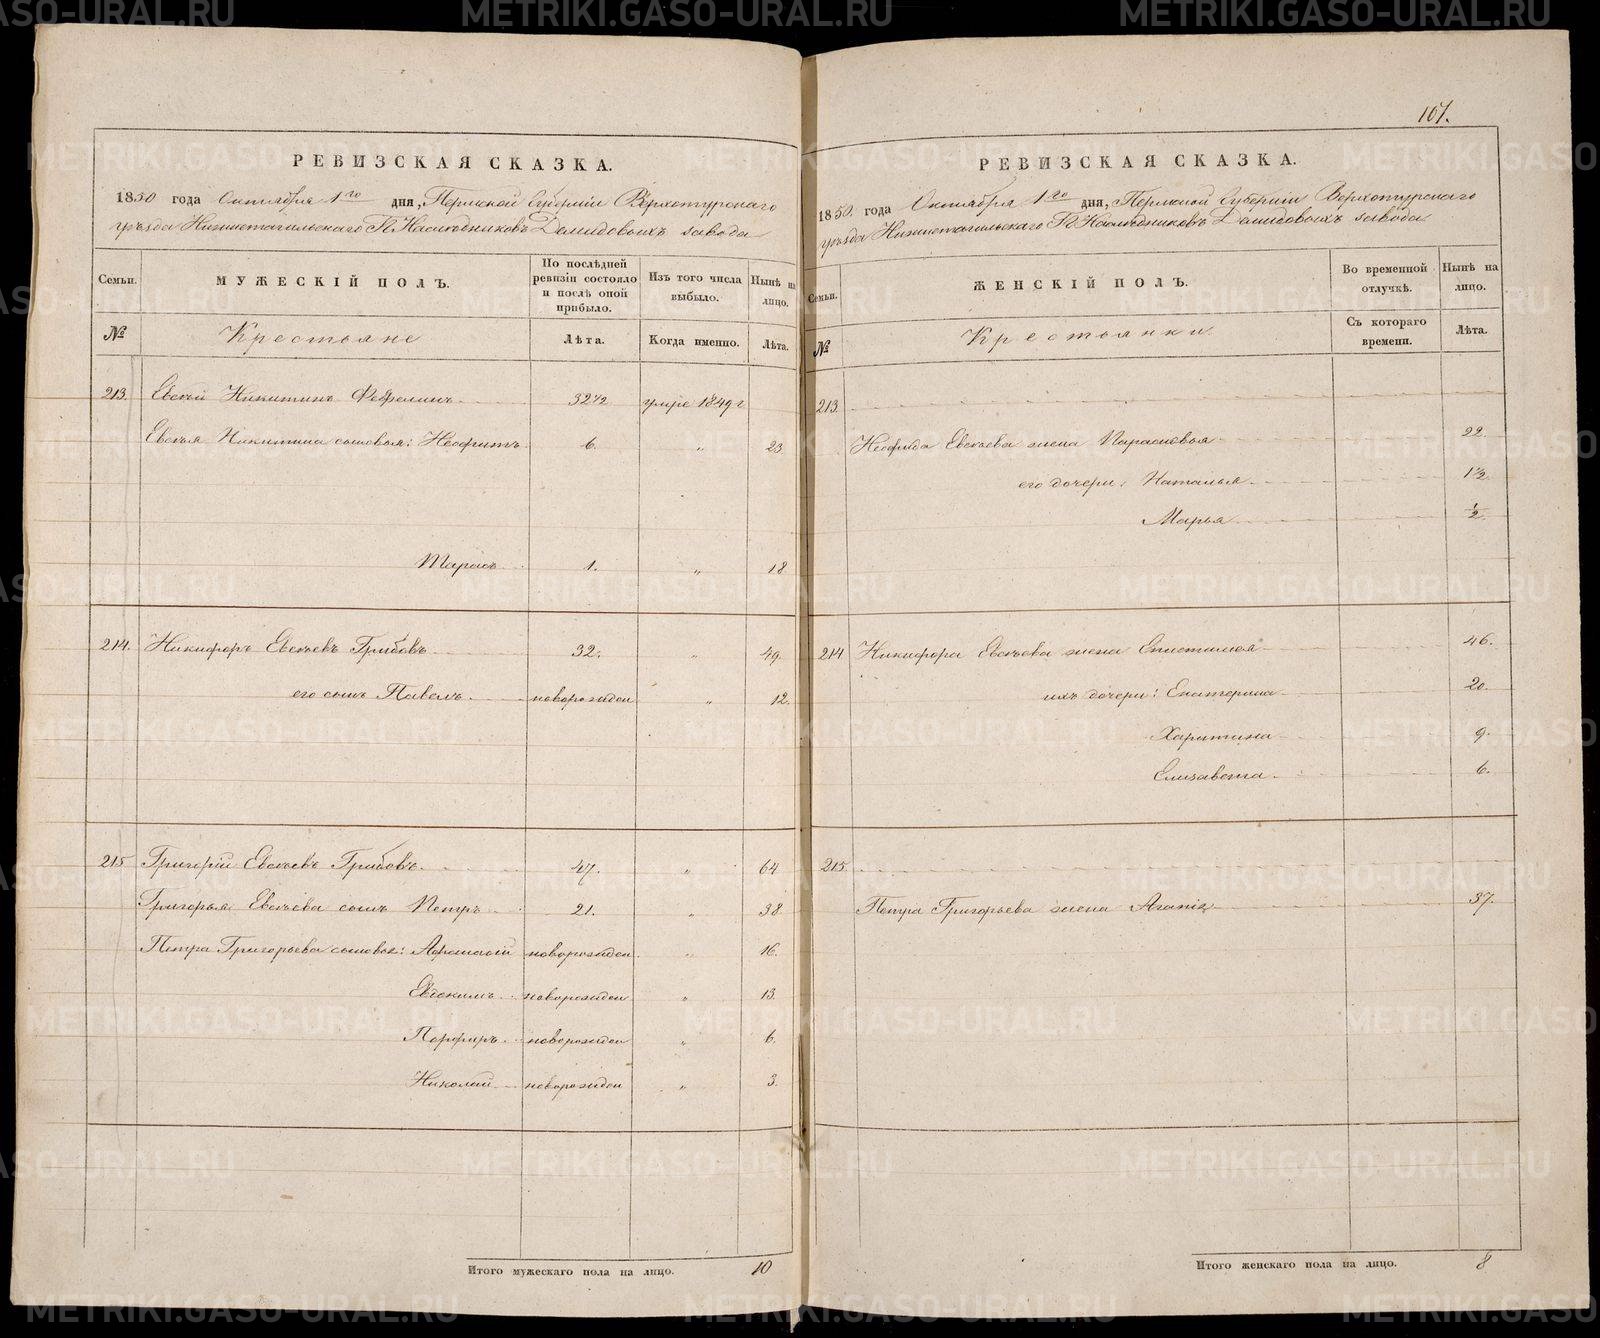 РЕВИЗСКАЯ СКАЗКА.
1850 года Октября 1го дня, Пермской Губерніи Верхотурскаго
уѣзда Нижнетагильскаго Г.Г. Наслѣдниковъ Демидовыхъ завода
Семьи. МУЖЕСКІЙ ПОЛЪ. По послѣдней ревизіи состояло и послѣ оной прибыло. Изъ того числа выбыло. Нынѣ на лицо.
№ Крестьяне Лѣта. Когда именно. Лѣта.
213. Никитинъ 32½ умре 1849 г
Никитина сыновья: Неофитъ 6. " 23
Тарасъ 1. " 18
214. Никифоръ Грибовъ 32. " 49
его сынъ Павелъ новорожден " 12.
215 Григорій Грибовъ 47. " 64
Григорья сынъ Петръ 21. " 38
Петра Григорьева сыновья: новорожден " 16.
Евдокимъ новорожден " 13.
Порфиръ новорожден " 6.
Николай новорожден " 3.
Итого мужескаго пола на лицо. 10
107.
РЕВИЗСКАЯ СКАЗКА.
1850. года Октября 1го дня, Пермской Губерніи Верхотурскаго
уѣзда Нижнетагильскаго Г.Г. Наслѣдниковъ Демидовыхъ завода
Семьи. ЖЕНСКІЙ ПОЛЪ. Во временной отлучкѣ. Нынѣ на лицо.
№ Крестьянки Съ котораго времени. Лѣта.
213.
жена Парасковья 22.
его дочери: Наталья 1½
Марья ½
214 Никифора жена Епистимея 46.
ихъ дочери: Екатерина 20.
Харитина 9.
Елизавета 6.
215.
Петра Григорьева жена Агапія 37.
Итого женскаго пола на лицо. 8
METRIKI.GASO-URAL.RU